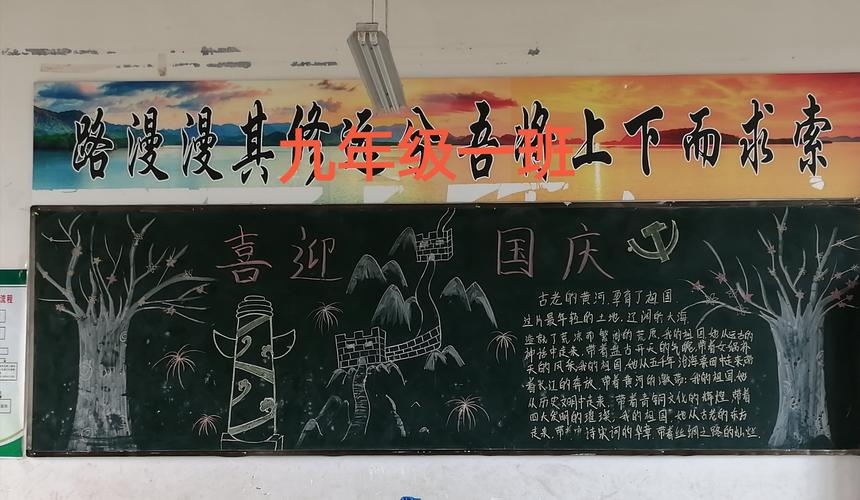 路漫漫其修远兮 吾将上下而求索
九年级一班
喜迎国庆
流程
古老的黄河,孕育了祖国
过片最年轻的土地,辽阔的大海
造就了荒凉而繁闹的荒原,我的祖国她从远古的
神话中走来,带着盘古开天的气魄,带着女娲补
天的风采,我的祖国,她从五千年沧海桑田中走来,带
着长江的奔放,带着黄河的激荡;我的祖国,她
从历史文明中走来,带着青铜文化的辉煌,带着
四大发明的璀璨,我的祖国,她从古老的东方
走来,带着诗宋词的华章,带着丝绸之路的灿烂.